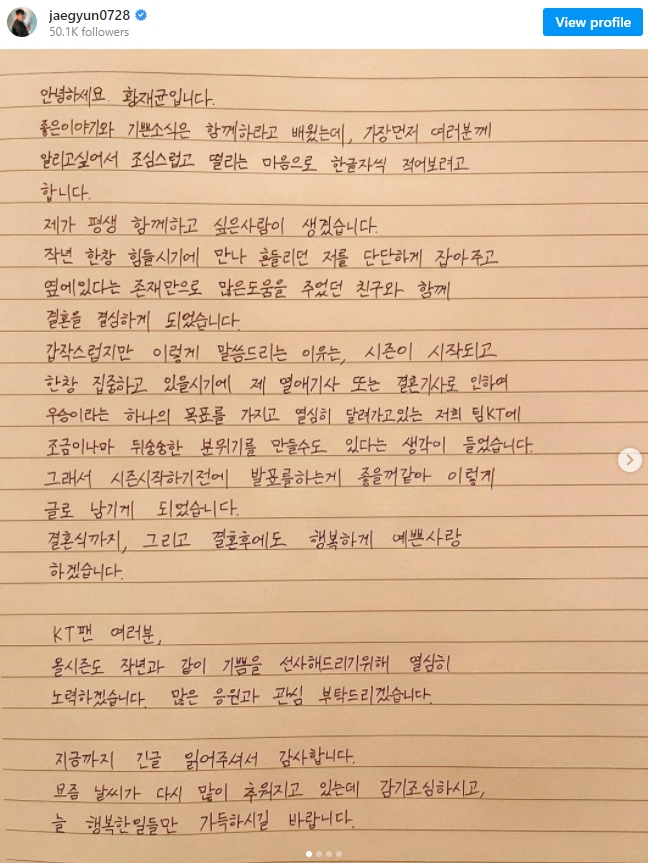 jaegyun0728
50.1K followers
View profile
안녕하세요 황재균입니다.
좋은이야기와 기쁜소식은 함께하라고 배웠는데, 가장먼저 여러분께
알리고싶어서 조심스럽고 떨리는 마음으로 한글자씩 적어보려고
합니다.
제가 평생 함께하고 싶은사람이 생겼습니다.
작년 한창 힘들시기에 만나 흔들리던 저를 단단하게 잡아주고
옆에있다는 존재만으로 많은도움을 주었던 친구와 함께
결혼을 결심하게 되었습니다.
갑작스럽지만 이렇게 말씀드리는 이유는, 시즌이 시작되고
한창 집중하고 있을시기에 제 열애기사 또는 결혼기사로 인하여
우승이라는 하나의 목표를 가지고 열심히 달려가고있는 저희 팀KT에
조금이나마 뒤숭숭한 분위기를 만들수도 있다는 생각이 들었습니다.
그래서 시즌시작하기전에 발표를하는게 좋을꺼같아 이렇게
글로 남기게 되었습니다.
결혼식까지, 그리고 결혼후에도 행복하게 예쁜사랑
하겠습니다.
KT팬 여러분,
올시즌도 작년과 같이 기쁨을 선사해드리기위해 열심히
노력하겠습니다. 많은 응원과 관심 부탁드리겠습니다.
지금까지 긴글 읽어주셔서 감사합니다.
요즘 날씨가 다시 많이 추워지고 있는데 감기조심하시고,
늘 행복한일들만 가득하시길 바랍니다.